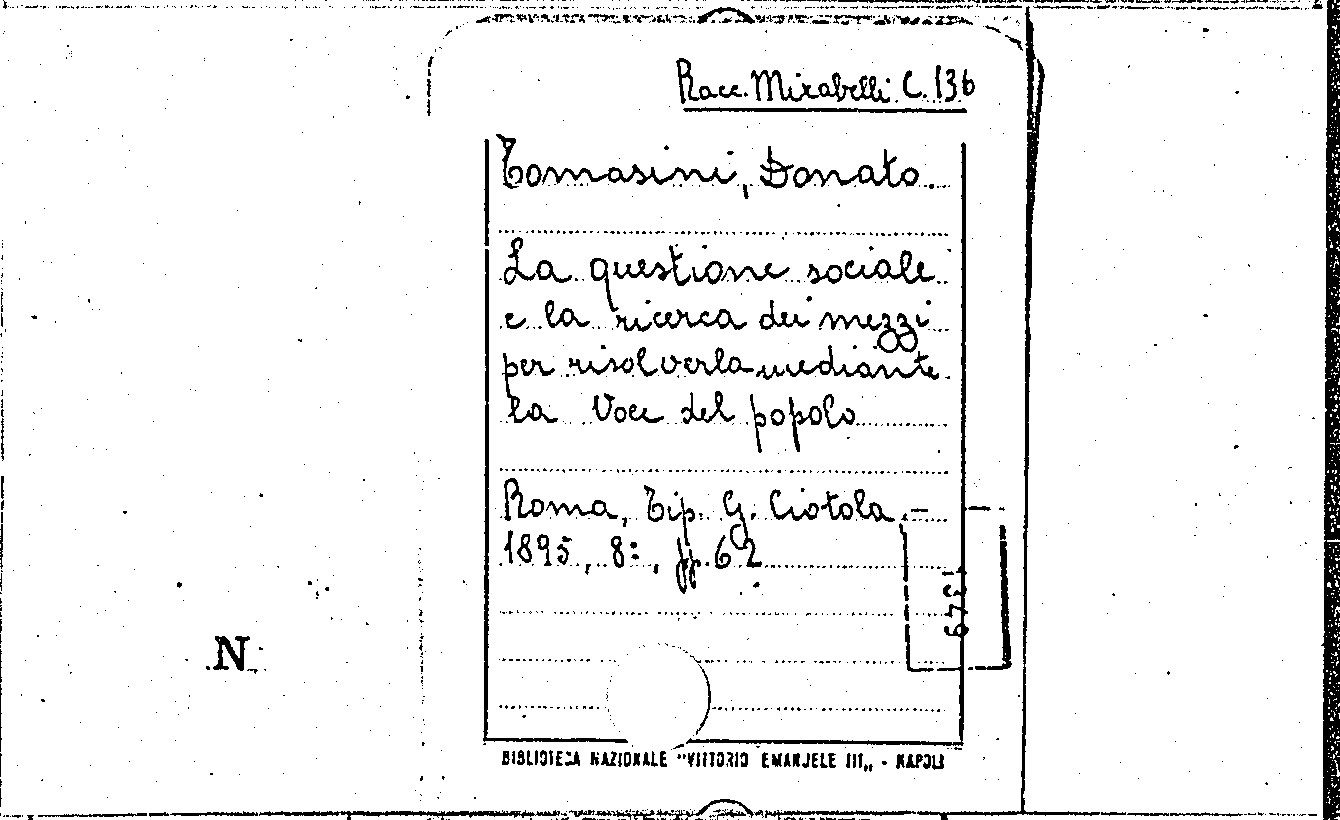 Racc. Mirabelli C. 136
Tomasini, Donato.
La questione sociale
e la ricerca dei mezzi
per risolverla mediante
la Voce del popolo
Roma, Tip. G. Ciotola, -
1895, 8:, pp. 62
1349
N
BIBLIOTECA NAZIONALE "VITTORIO EMANUELE III„ - NAPOLI